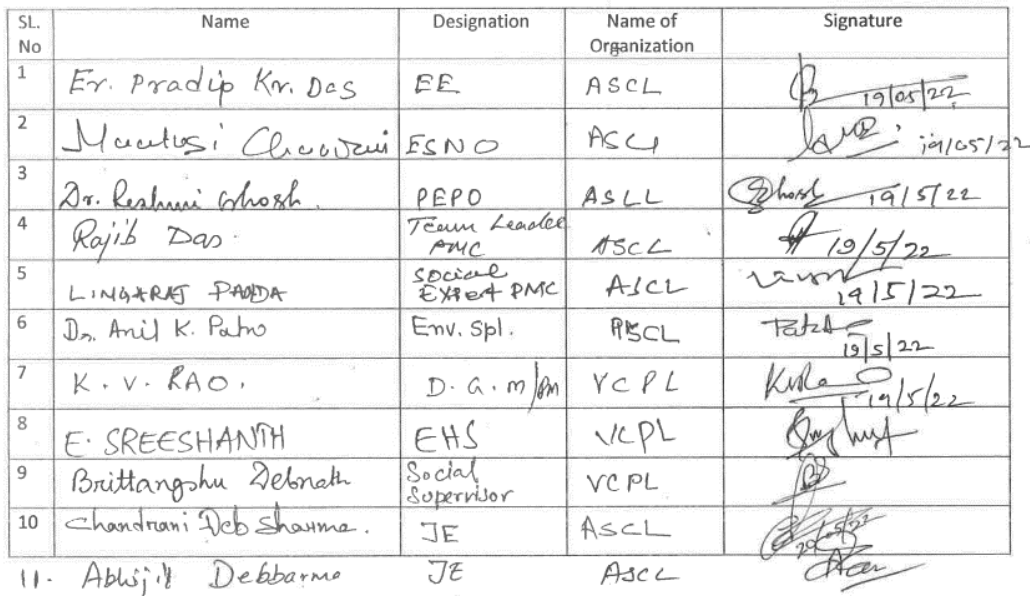 SL. No Name Designation Name of Organization Signature
1 Er. Pradip Kr. Das EE ASCL 19/05/22
2 ESNO ASCL 19/05/22
3 Dr. Reshmi Ghosh. PEPO ASLL Ghosh 19/5/22
4 Rajib Das. Team Leader PMC ASCL 19/5/22
5 LINGARAJ PANDA Social Expert PMC ASCL 19/5/22
6 Dr. Anil K. Patro Env. Spl. ASCL 19/5/22
7 K. V. RAO. D.G.m/Pm VCPL 19/5/22
8 E. SREESHANTH EHS VCPL
9 Brittangshu Debnath Social Supervisor VCPL
10 Chandrani Deb Sharma. JE ASCL 20/05/22
11. Abhijit Debbarma JE ASCL